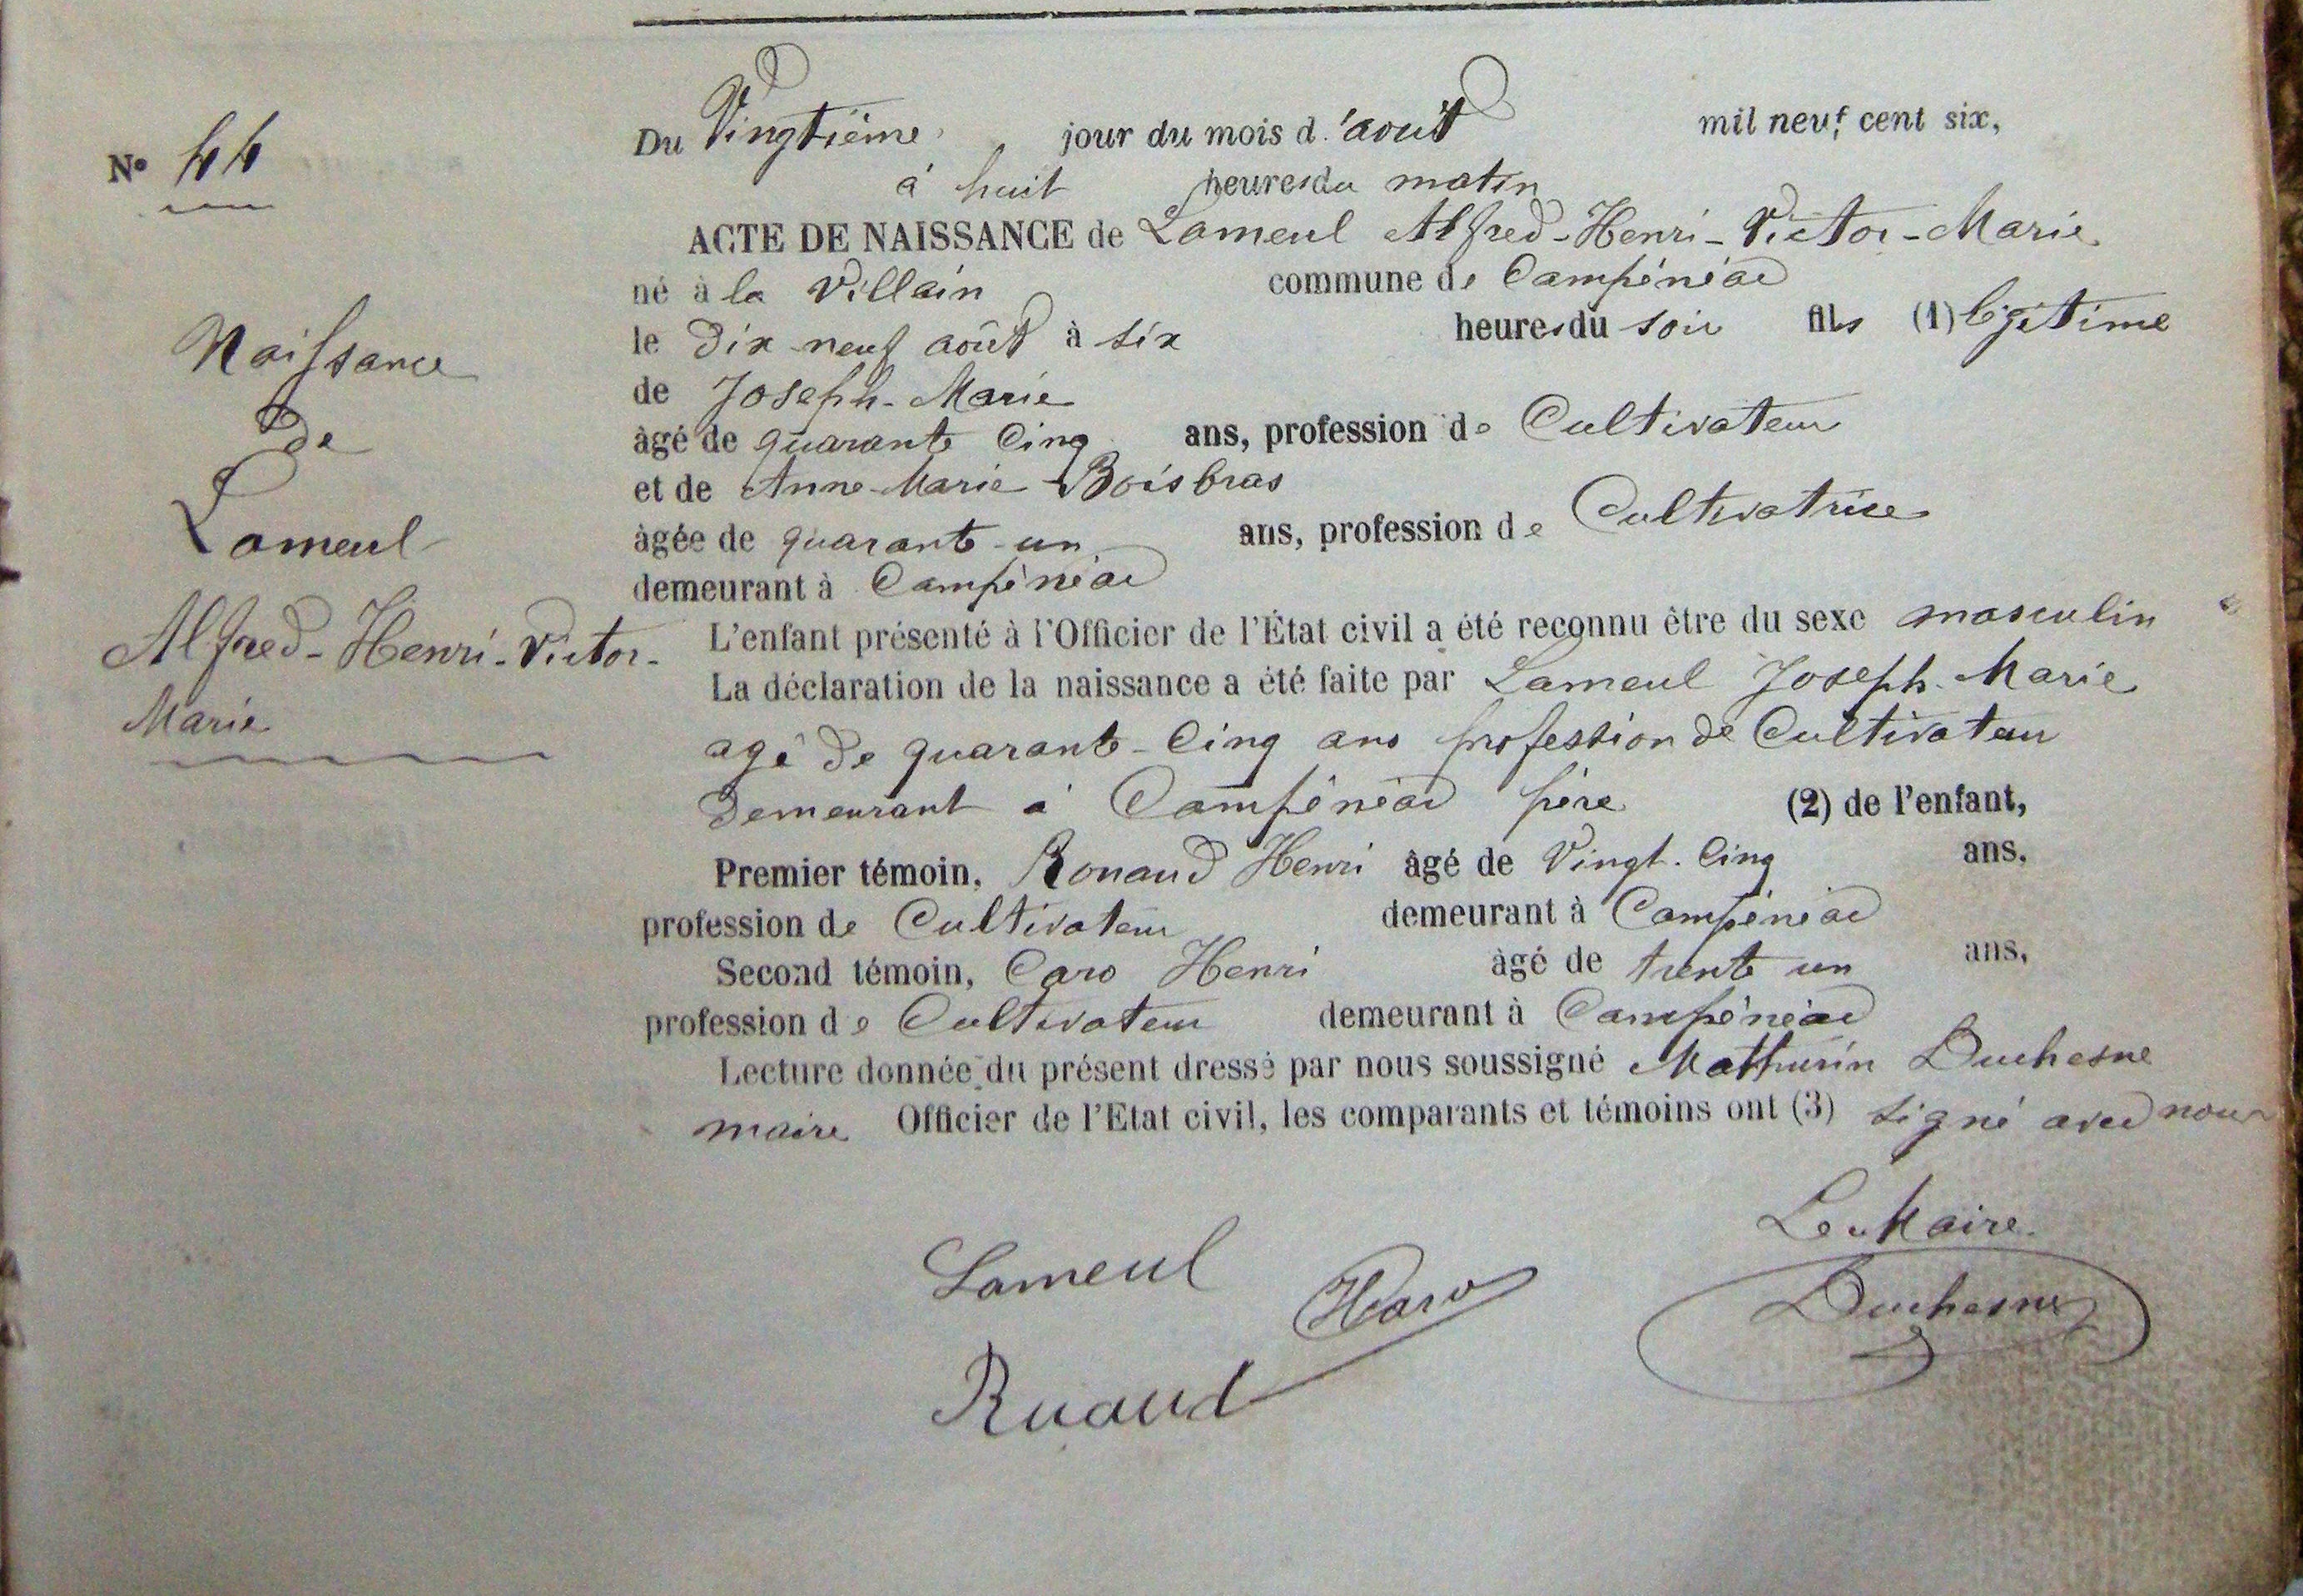 N° 44
Naissance
de
Lameul
Alfred-Henri-Victor-
Marie
Du Vingtième jour du mois d'août mil neuf cent six,
à huit heures du matin
ACTE DE NAISSANCE de Lameul Alfred-Henri-Victor-Marie
né à la Villain commune de Campénéac
le dix-neuf août à six heures du soir fils (1) légitime
de Joseph-Marie
âgé de quarante cinq ans, profession de Cultivateur
et de Anne-Marie Boisbras
âgée de quarante-un ans, profession de Cultivatrice
demeurant à Campénéac
L'enfant présenté à l'Officier de l'État civil a été reconnu être du sexe masculin
La déclaration de la naissance a été faite par Lameul Joseph-Marie
agé de quarante-cinq ans profession de Cultivateur
demeurant à Campénéac père (2) de l'enfant,
Premier témoin, Ronaud Henri âgé de Vingt-cinq ans,
profession de Cultivateur demeurant à Campénéac
Second témoin, Caro Henri âgé de trente un ans,
profession de Cultivateur demeurant à Campénéac
Lecture donnée du présent dressé par nous soussigné Mathurin Duchesne
maire Officier de l'Etat civil, les comparants et témoins ont (3) signé avec nous
Le Maire
Lameul HCaro Duchesne
Ruaud